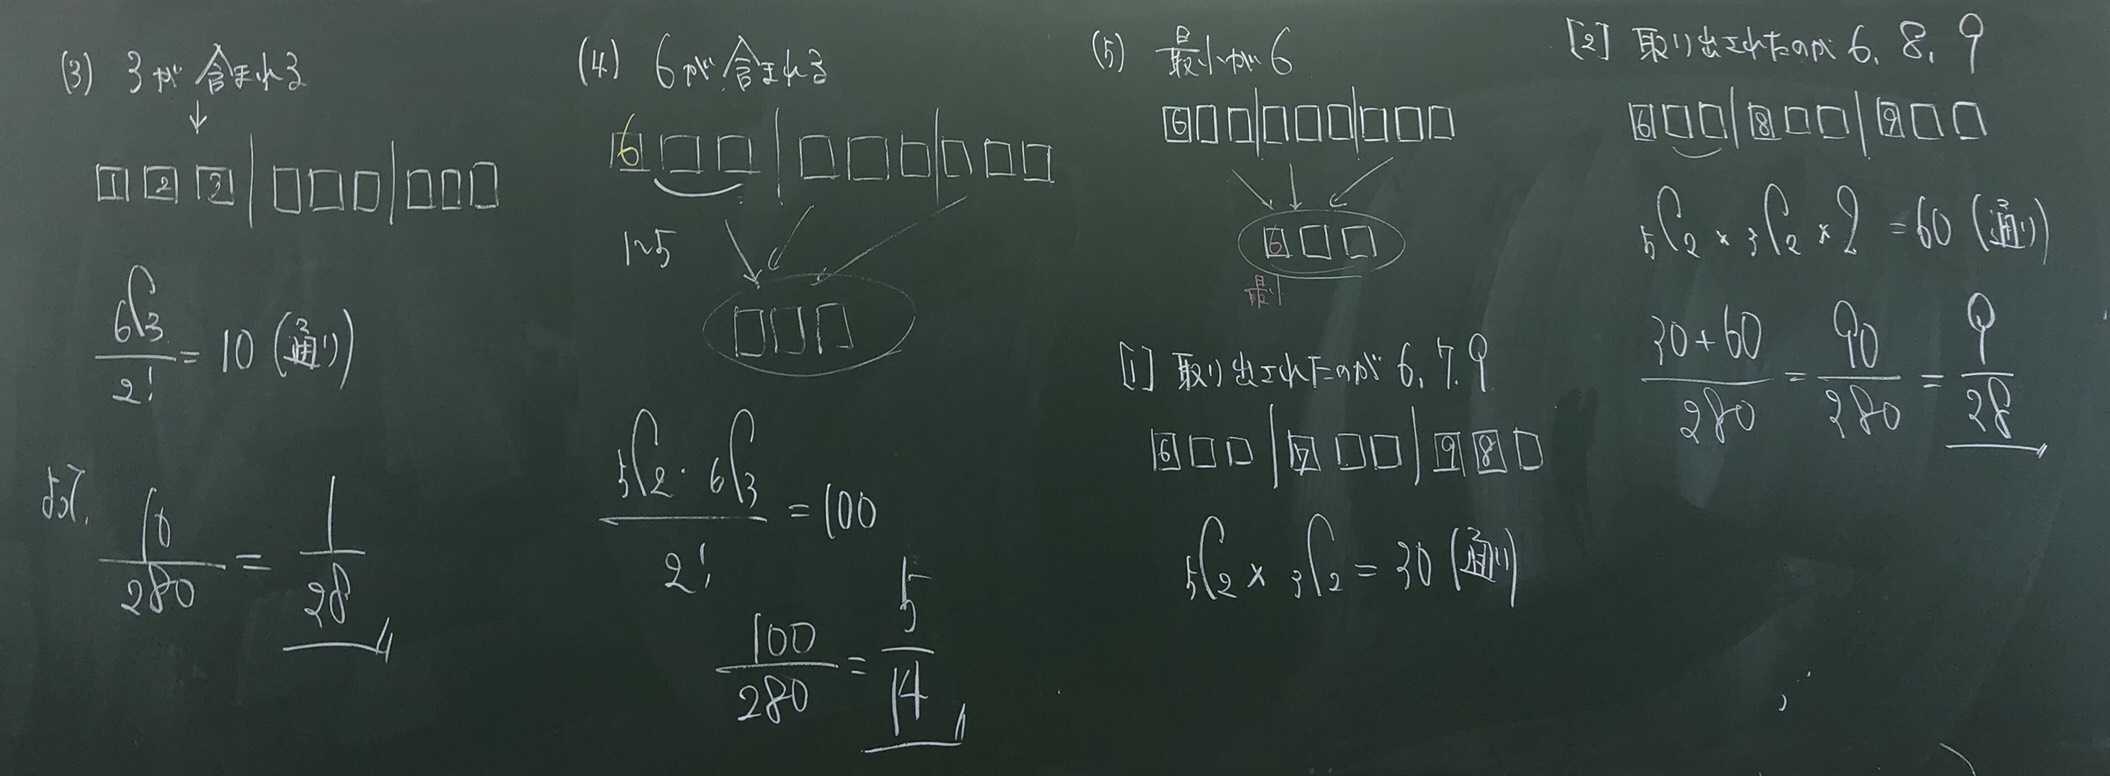 (3) 3が含まれる
↓
1 2 3 □ □ □ □ □ □
₆C₃/2! = 10 (通り)
よって、
10/280 = 1/28
(4) 6が含まれる
6 □ □ □ □ □ □ □ □
1~5
□ □ □
₅C₂・₆C₃/2! = 100
100/280 = 5/14
(5) 最小が6
6 □ □ □ □ □ □ □ □
6 □ □
最小
[1] 取り出されたのが 6, 7, 9
6 □ □ | 7 □ □ | 9 8 □
₅C₂ × ₃C₂ = 30 (通り)
[2] 取り出されたのが 6, 8, 9
6 □ □ | 8 □ □ | 9 □ □
₅C₂ × ₃C₂ × 2 = 60 (通り)
30+60/280 = 90/280 = 9/28